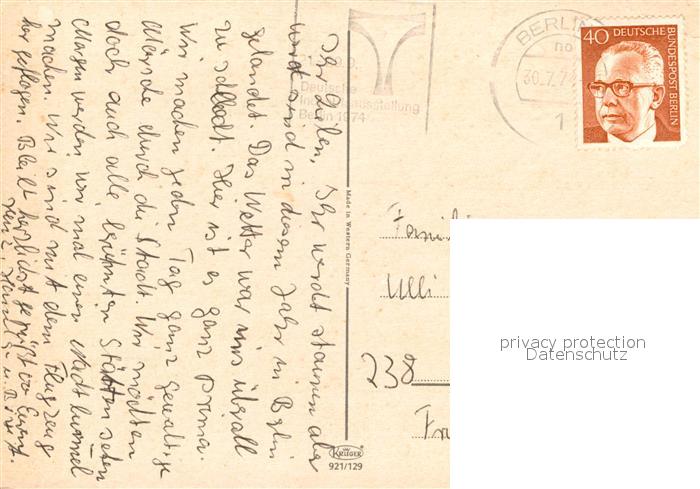 Ihr Lieben, Ihr werdet staunen aber
wir sind in diesem Jahr in Berlin
gelandet. Das Wetter war uns überall
zu schlecht. Hier ist es ganz prima.
Wir machen jeden Tag ganz gewaltige
Märsche durch die Stadt. Wir möchten
doch auch alle berühmten Stätten sehen
Morgen werden wir mal einen Stadtbummel
machen. Wir sind mit dem Flugzeug
her geflogen. Bleibt herzlichst gegrüßt von Euren
Heinz,
Made in Western Germany
KRÜGER
921/129
Deutsche
Berlin 1974
BERLIN
30.7.7
1
40 DEUTSCHE
BUNDESPOST BERLIN
Ulli
238
privacy protection
Datenschutz